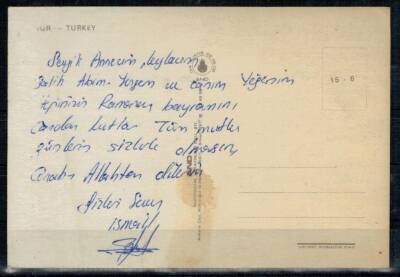 UR - TURKEY
Sevgili Annecim,
Fatih Abim Yengem ve canım Yeğenim
Hepinizin Ramazan bayramını
Candan kutlar Tüm mutlu
günlerin sizlerle olmasını
Cenabı Allahtan dilerim
Sizleri Seven
ismail
15 - 6